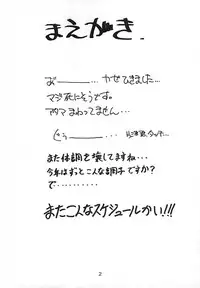 まえがき.
お———… かぜひきました…
マジ死にそうです。
アタマまわってません…
また体調を壊してますね…
今年はずっとこんな調子ですか?
で………
またこんなスケジュールかい!!!
2